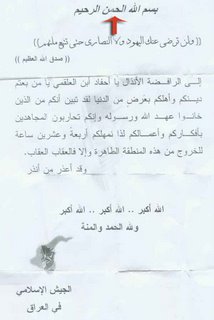 بسم الله الحمن الرحيم
((ولن ترضى عنك اليهود ولا النصارى حتى تتبع ملتهم))
((صدق الله العظيم))
إلى الرافضة الأنذال يا أحفاد ابن العلقمي يا من بعتم
دينكم وأهلكم بعرض من الدنيا لقد تبين أنكم من الذين
خانوا عهد الله ورسوله وإنكم تحاربون المجاهدين
بأفكاركم وأعمالكم لذا نمهلكم أربعة وعشرين ساعة
للخروج من هذه المنطقة الطاهرة وإلا فالعقاب العقاب.
وقد أعذر من أنذر
الله أكبر .. الله أكبر .. الله أكبر
ولله الحمد والمنة
الجيش الإسلامي
في العراق